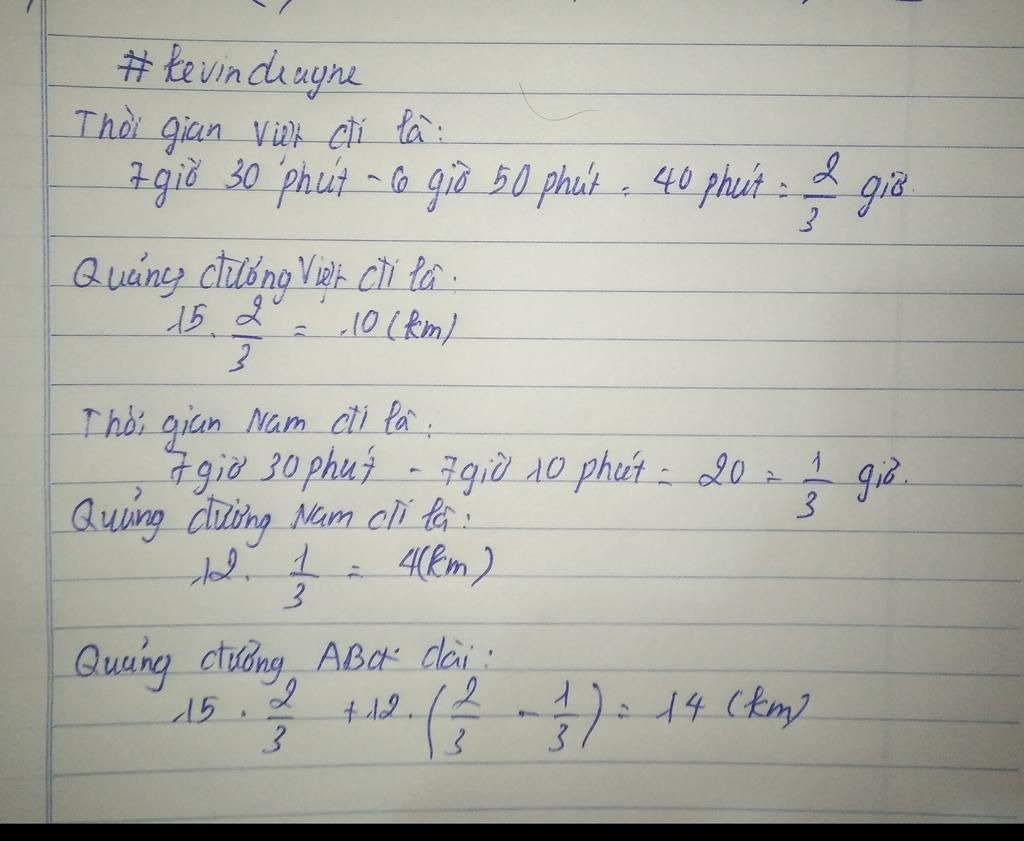 #kevindrayne
Thời gian Việt đi là:
7 giờ 30 phút - 6 giờ 50 phút = 40 phút = 2/3 giờ.
Quảng đường Việt đi là:
15 . 2/3 = 10 (km)
Thời gian Nam đi là:
7 giờ 30 phút - 7 giờ 10 phút = 20 = 1/3 giờ.
Quảng đường Nam đi là:
12 . 1/3 = 4 (km)
Quảng đường AB dài:
15 . 2/3 + 12 . (2/3 - 1/3) = 14 (km)